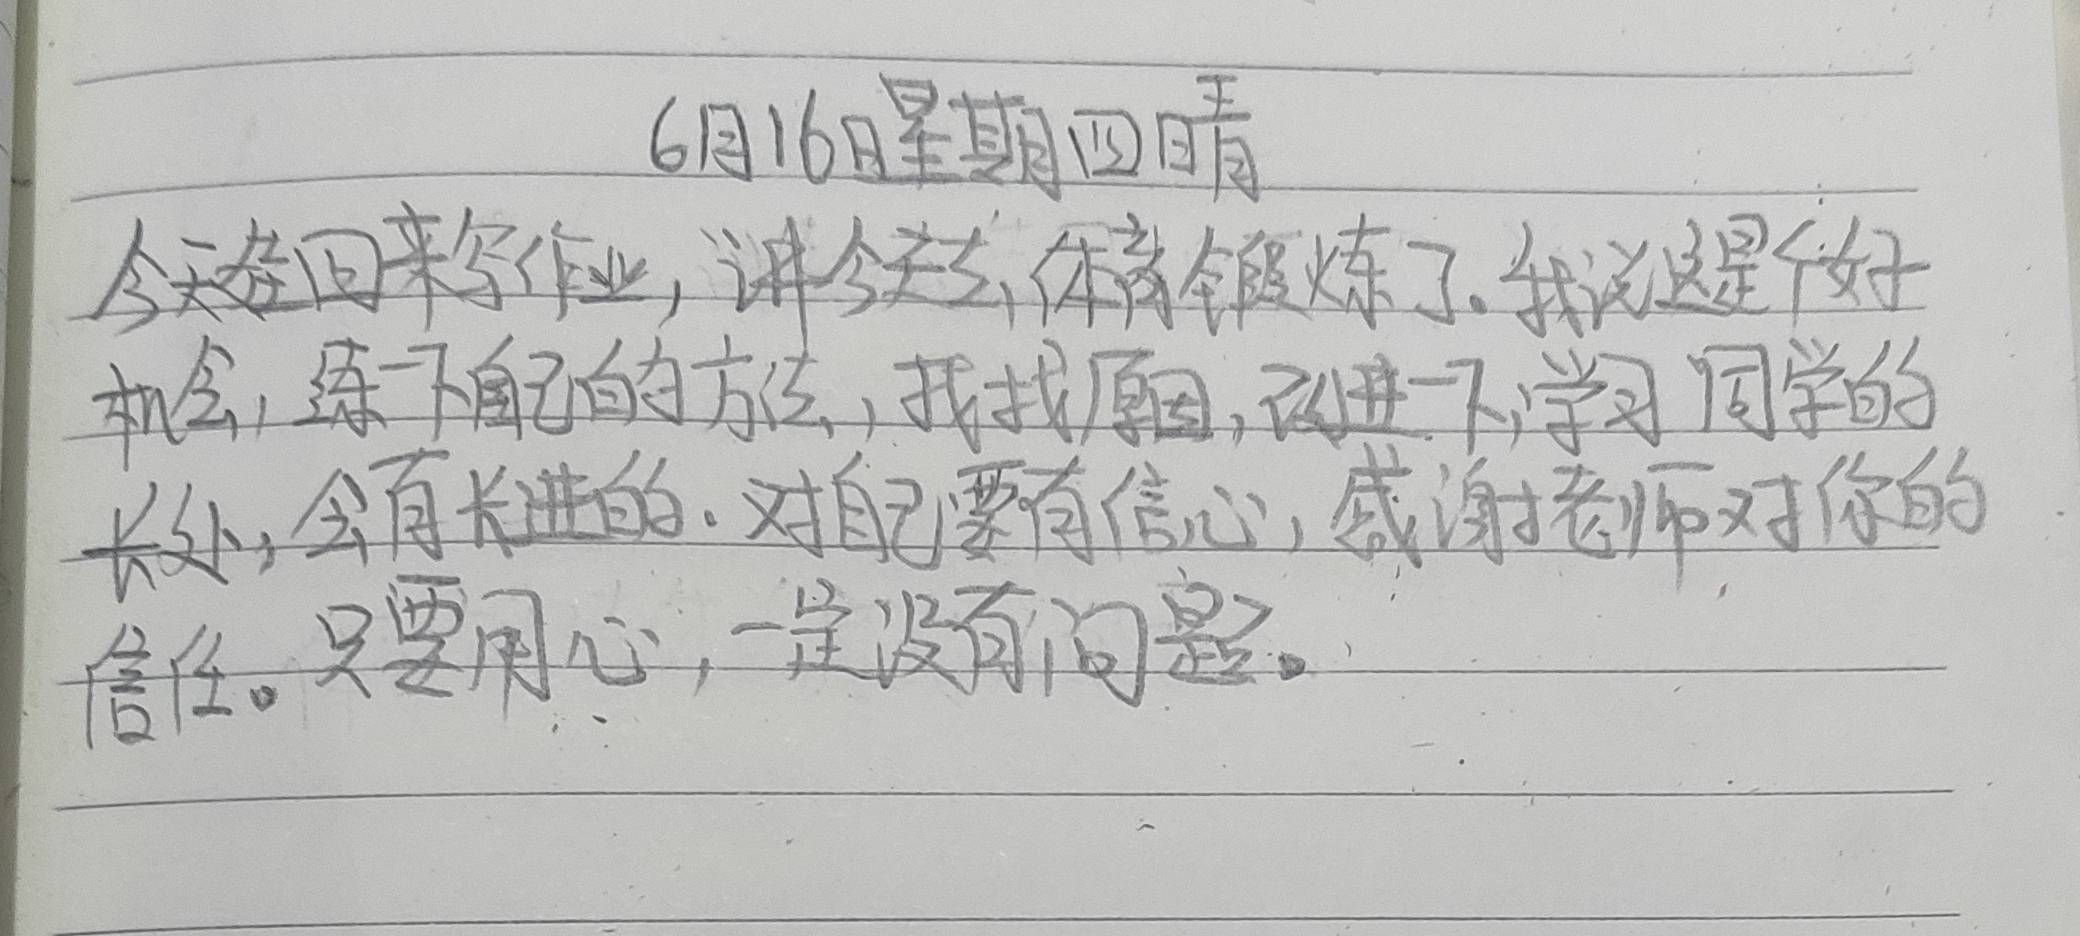 6月16日星期四晴
今天回来写作业，讲今天去体育锻炼了。我说这是个好
机会，练一下自己的方法，找找原因，改进一下，学习同学的
长处，会有长进的。对自己要有信心，感谢老师对你的
信任。只要用心，一定没有问题。